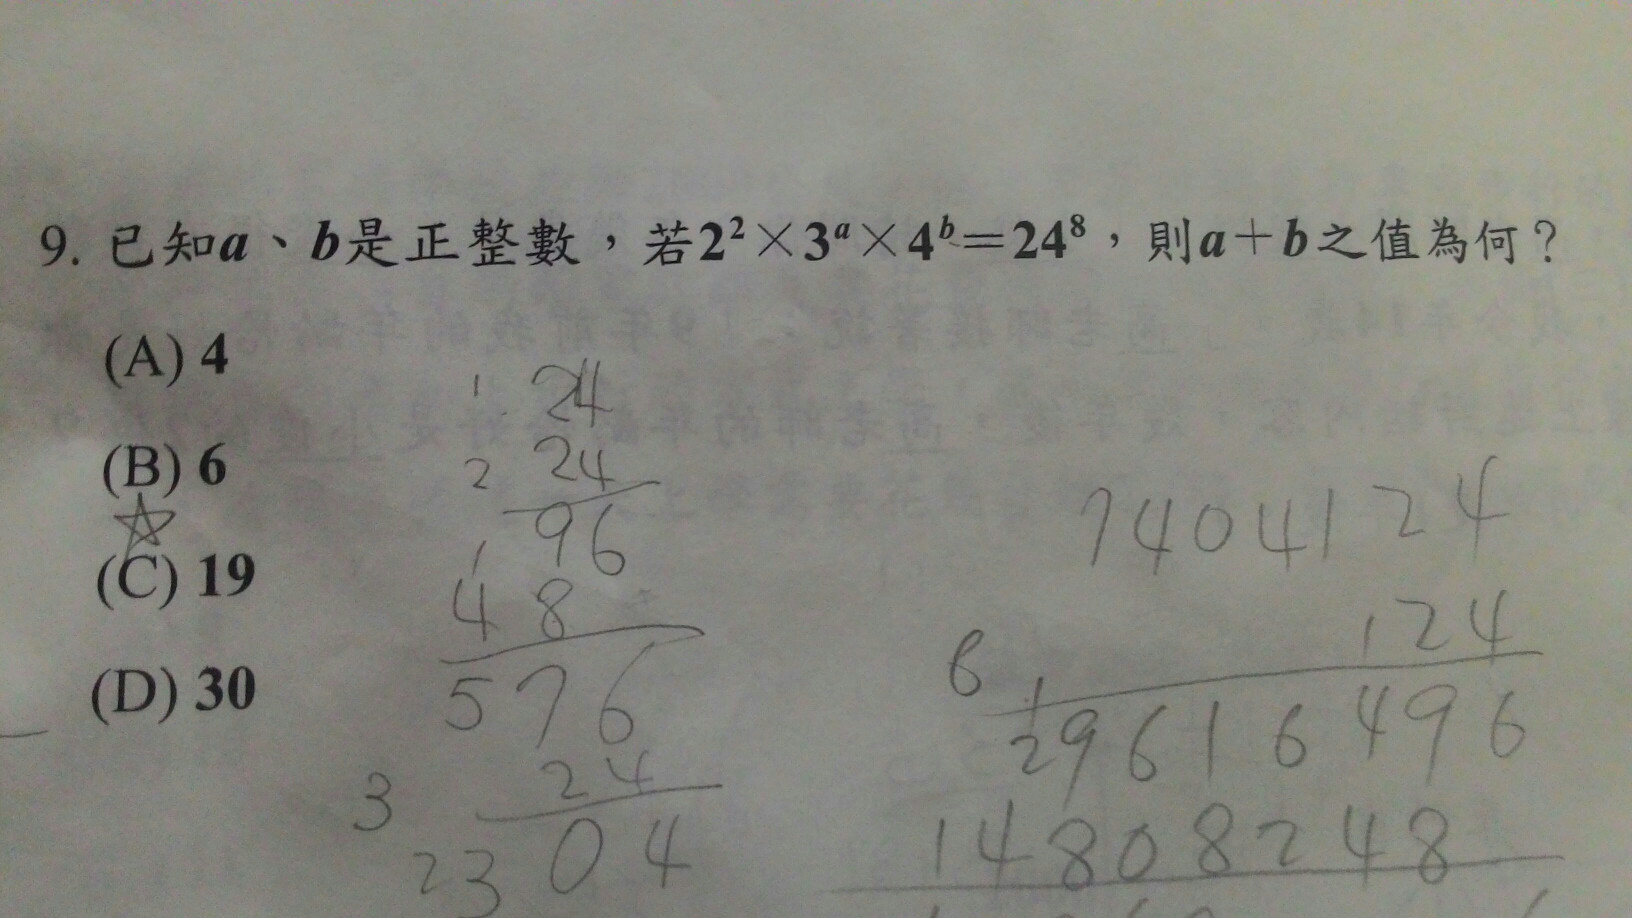 9. 已知a、b是正整數，若2²×3ᵃ×4ᵇ=24⁸，則a+b之值為何？
(A) 4
(B) 6
(C) 19
(D) 30
1 24
2 24
96
1
4 8
576
24
3
2304
7404124
124
6 1
29616496
14808248